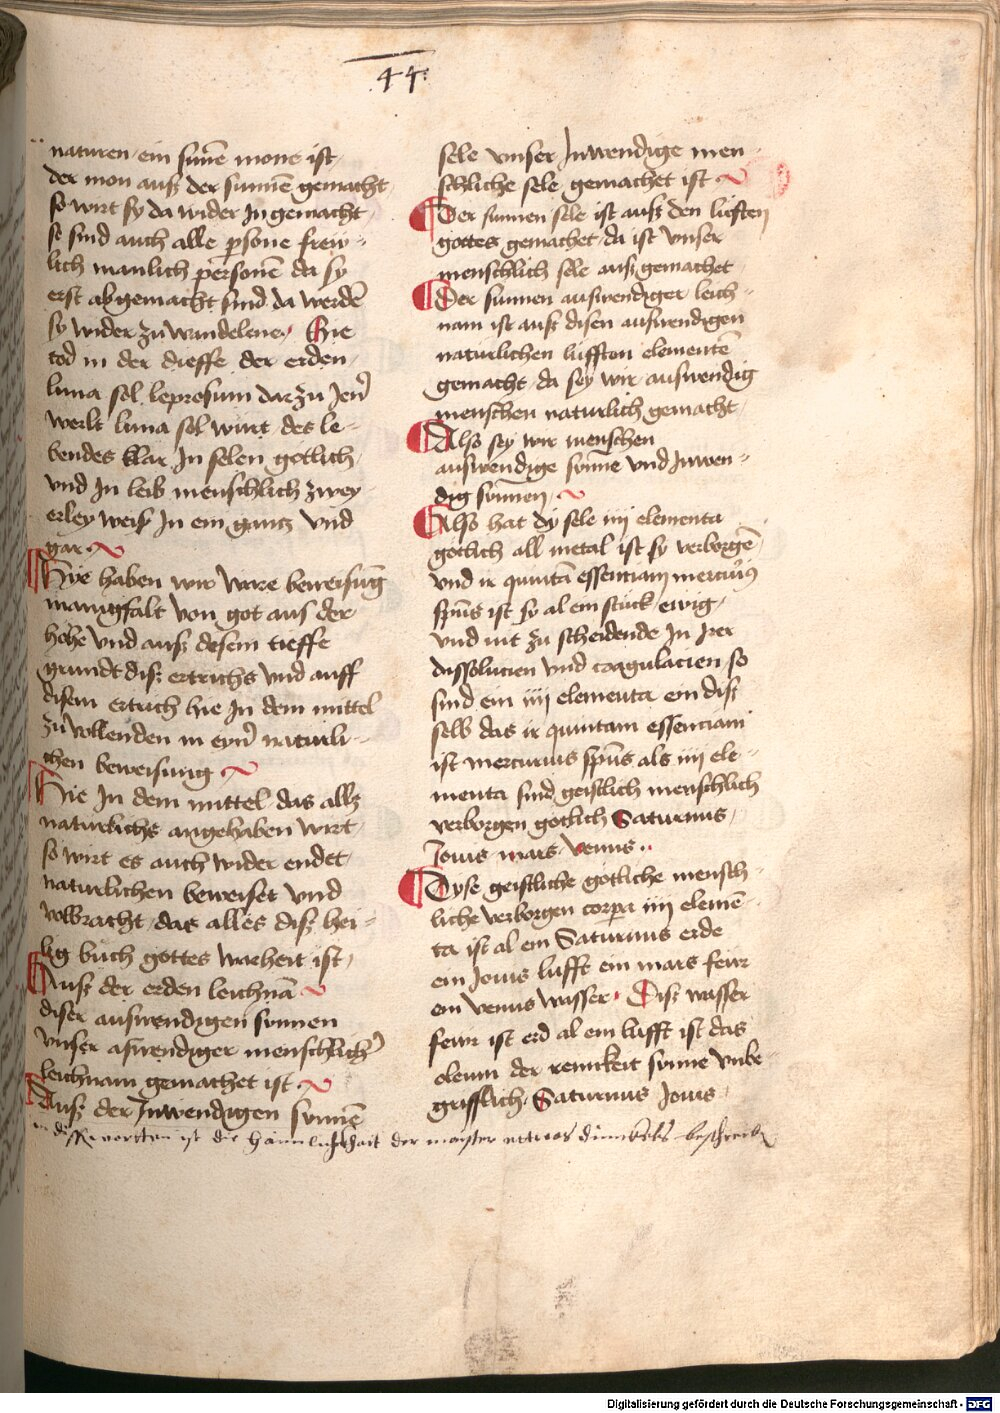 44
naturen ein sunne mone ist
der mon auß der sunnen gemacht
so wirt sy da wider In gemacht
se sind auch alle persone frew-
lich manlich personen da sy
erst abgemacht sind da werden
sy wider zu wandelene. Hie
tod in der dieffe der erden
luna sol leprosum darzu Jen
werlt luna sol wirt des le-
bendes klar In selen gotlich
vnd In leib menschlich zwey-
erley weiß In ein gantz vnd
gar
Hie haben wir ware beweisung
manigfalt von got aus der
hohe vnd auß disem tieffe
grundt diß ertrichs vnd auff
disem ertrich hie In dem mittel
zu vollenden in eyner naturli-
chen beweisung
Hie In dem mittel das alls
naturlichs angehaben wirt
so wirt es auch wider endet
naturlichen beweiset vnd
volbracht das alles diß hei-
lig buch gottes warheit ist
Auß der erden leichnam
diser auswendigen sunnen
vnser aswendiger menschlicher
leichnam gemachet ist
Auß der Inwendigen sunnen
sele vnser Inwendige men-
schliche sele gemachet ist
Der sunnen sele ist auß den lufften
gottes gemachet da ist vnser
menschlich sele auß gemachet
Der sunnen auswendiger leich-
nam ist auß disen auswendigen
naturlichen lufften elementen
gemacht da sey wir auswendig
menschen naturlich gemacht
Also sey wir menschen
auswendige sunne vnd Inwen-
dig sunnen
Also hat dy sele iiij elementa
gotlich all metal ist sy verborgen
vnd ir quintam essentiam mercurius
spiritus ist sy al ein stuck ewig
vnd nit zu scheidende In irer
dissolucien vnd coagulacien so
sind ein iiij elementa ein diß
selb das ir quintam essentiam
ist mercurius spiritus als iiij ele-
menta sind geistlich menschlich
verborgen gotlich Saturnus
Jouis mars venus
Dyse geistliche gotliche mensch-
liche verborgen corpora iiij elemen-
ta ist al ein Saturnus erde
ein Jouis lufft ein mars fewr
ein venus wasser Diß wasser
fewr ist erd al ein lufft ist das
oleum der reinikeit sunne vnbe-
grifflich Saturnus Jouis
worten ist die der maister beschreiben
Digitalisierung gefördert durch die Deutsche Forschungsgemeinschaft - DFG